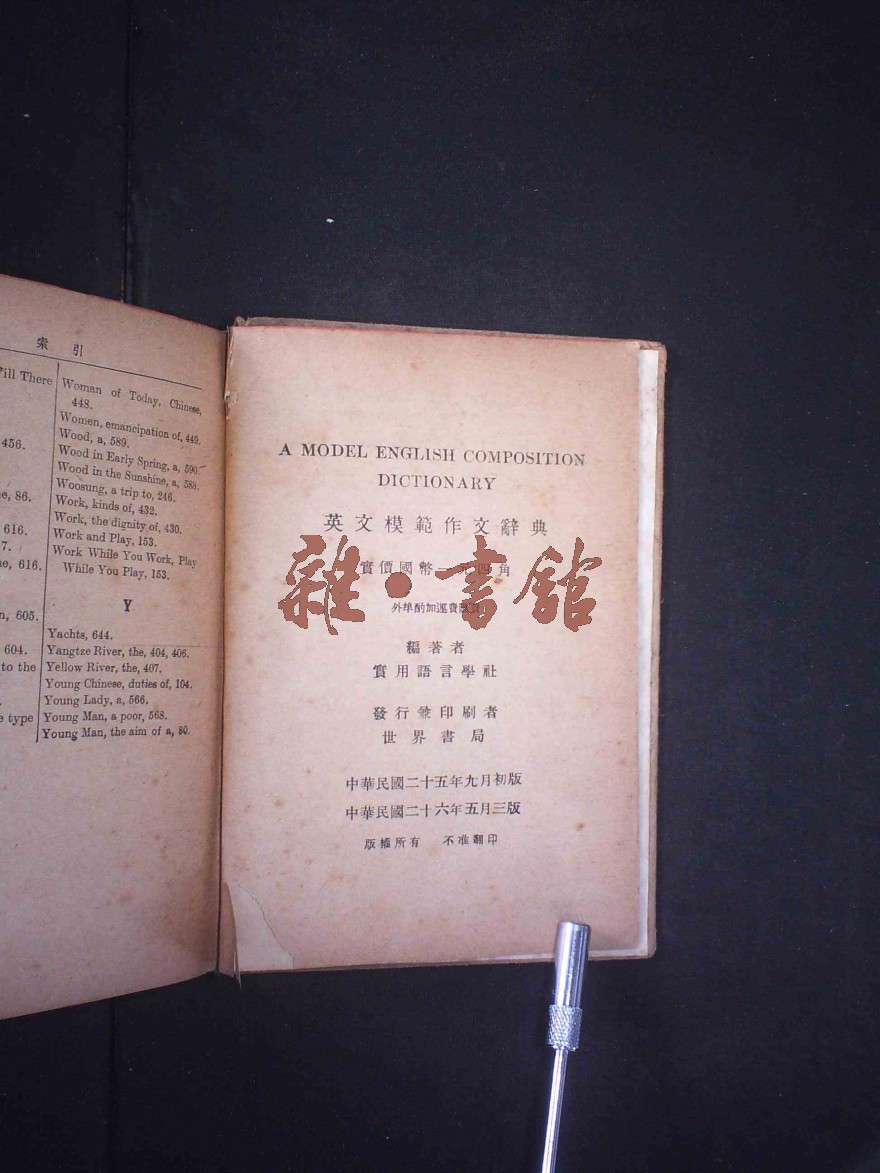 索 引
Vill There
456.
e, 86.
616.
7.
ne, 616.
n, 605.
604.
to the
e type
Woman of Today, Chinese,
448.
Women, emancipation of, 449.
Wood, a, 589.
Wood in Early Spring, a, 590.
Wood in the Sunshine, a, 588.
Woosung, a trip to, 246.
Work, kinds of, 432.
Work, the dignity of, 430.
Work and Play, 153.
Work While You Work, Play
While You Play, 153.
Y
Yachts, 644.
Yangtze River, the, 404, 406.
Yellow River, the, 407.
Young Chinese, duties of, 104.
Young Lady, a, 566.
Young Man, a poor, 568.
Young Man, the aim of a, 80.
A MODEL ENGLISH COMPOSITION
DICTIONARY
英文模範作文辭典
實價國幣一元四角
外埠酌加運費匯費
雜·書館
編著者
實用語言學社
發行兼印刷者
世界書局
中華民國二十五年九月初版
中華民國二十六年五月三版
版權所有 不准翻印